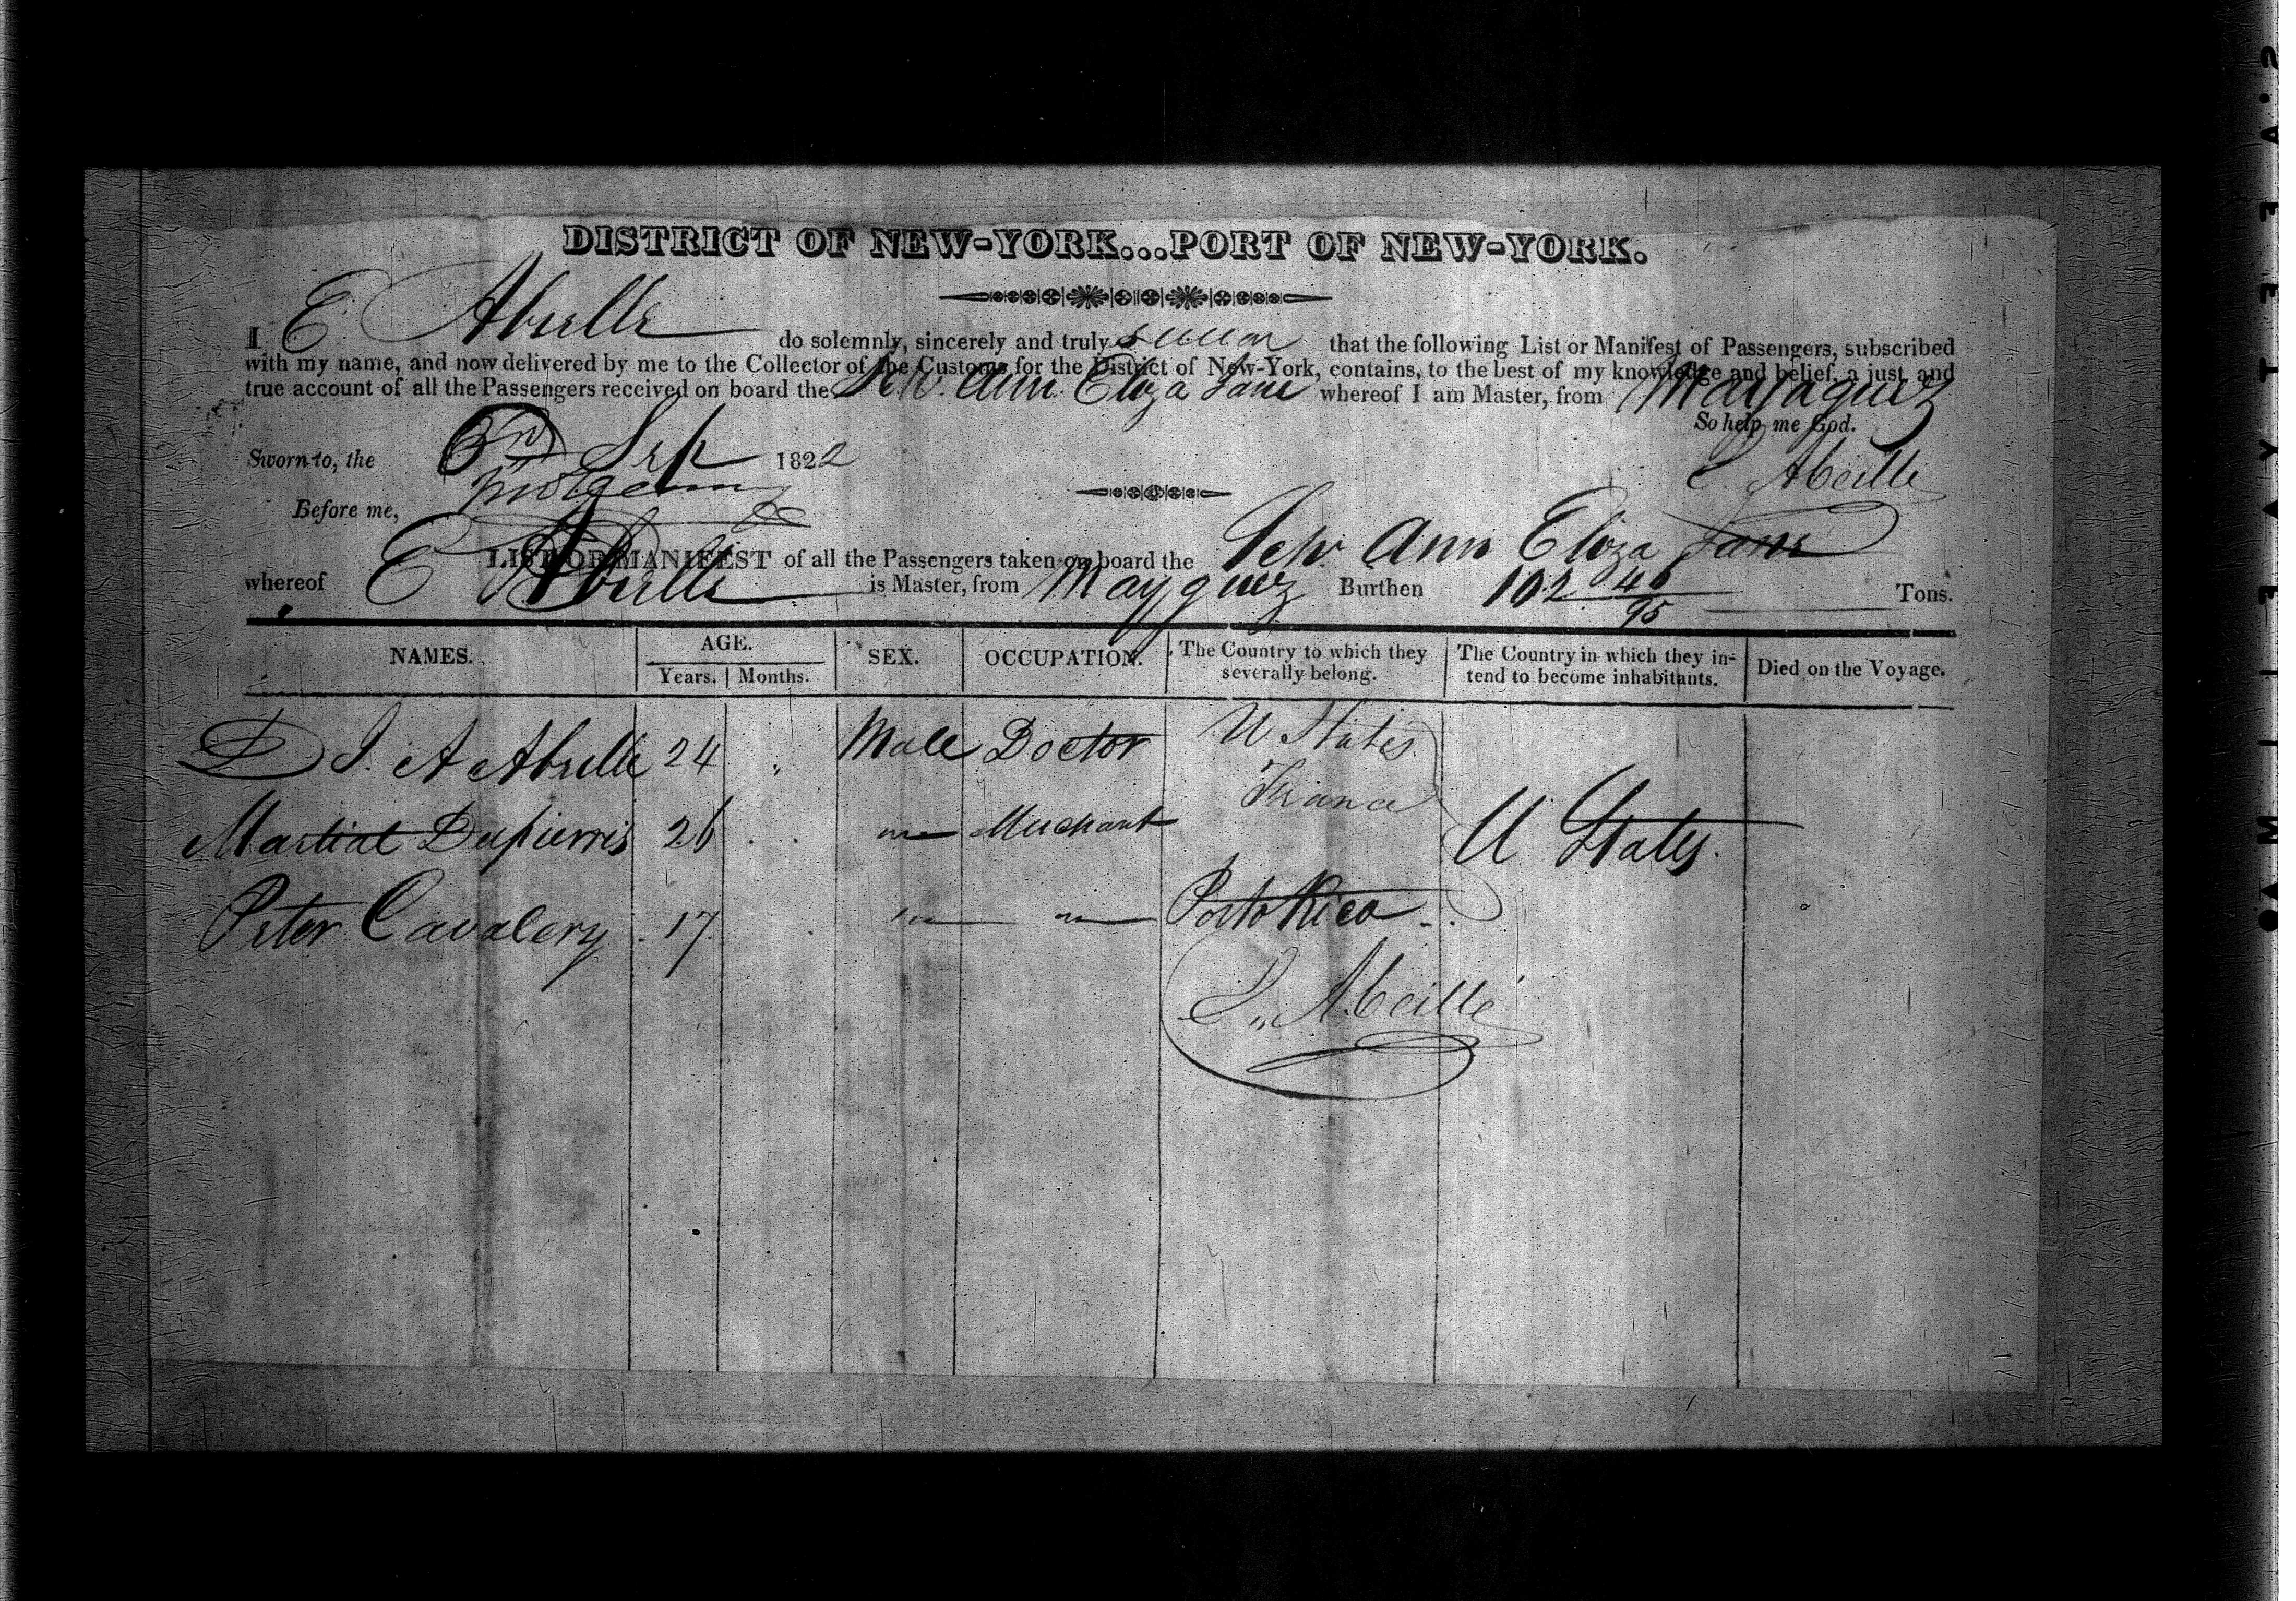 DISTRICT OF NEW-YORK...PORT OF NEW-YORK.
I E Abeille do solemnly, sincerely and truly swear that the following List or Manifest of Passengers, subscribed
with my name, and now delivered by me to the Collector of the Customs for the District of New-York, contains, to the best of my knowledge and belief, a just and
true account of all the Passengers received on board the Schr. Ann Eliza Jane whereof I am Master, from Mayaguez
So help me God.
Sworn to, the Sep 1822
E. Abeille
Before me,
LIST OR MANIFEST of all the Passengers taken on board the Schr Ann Eliza Jane
whereof E Abeille is Master, from Mayguez Burthen 102 46/95 Tons.
NAMES. AGE. SEX. OCCUPATION. The Country to which they severally belong. The Country in which they intend to become inhabitants. Died on the Voyage.
Years. Months.
J. A Abeille 24 " Male Doctor U States
France
Martial Dupierris 26 Merchant U States.
Peter Cavalery 17 Porto Rico
E. Abeille